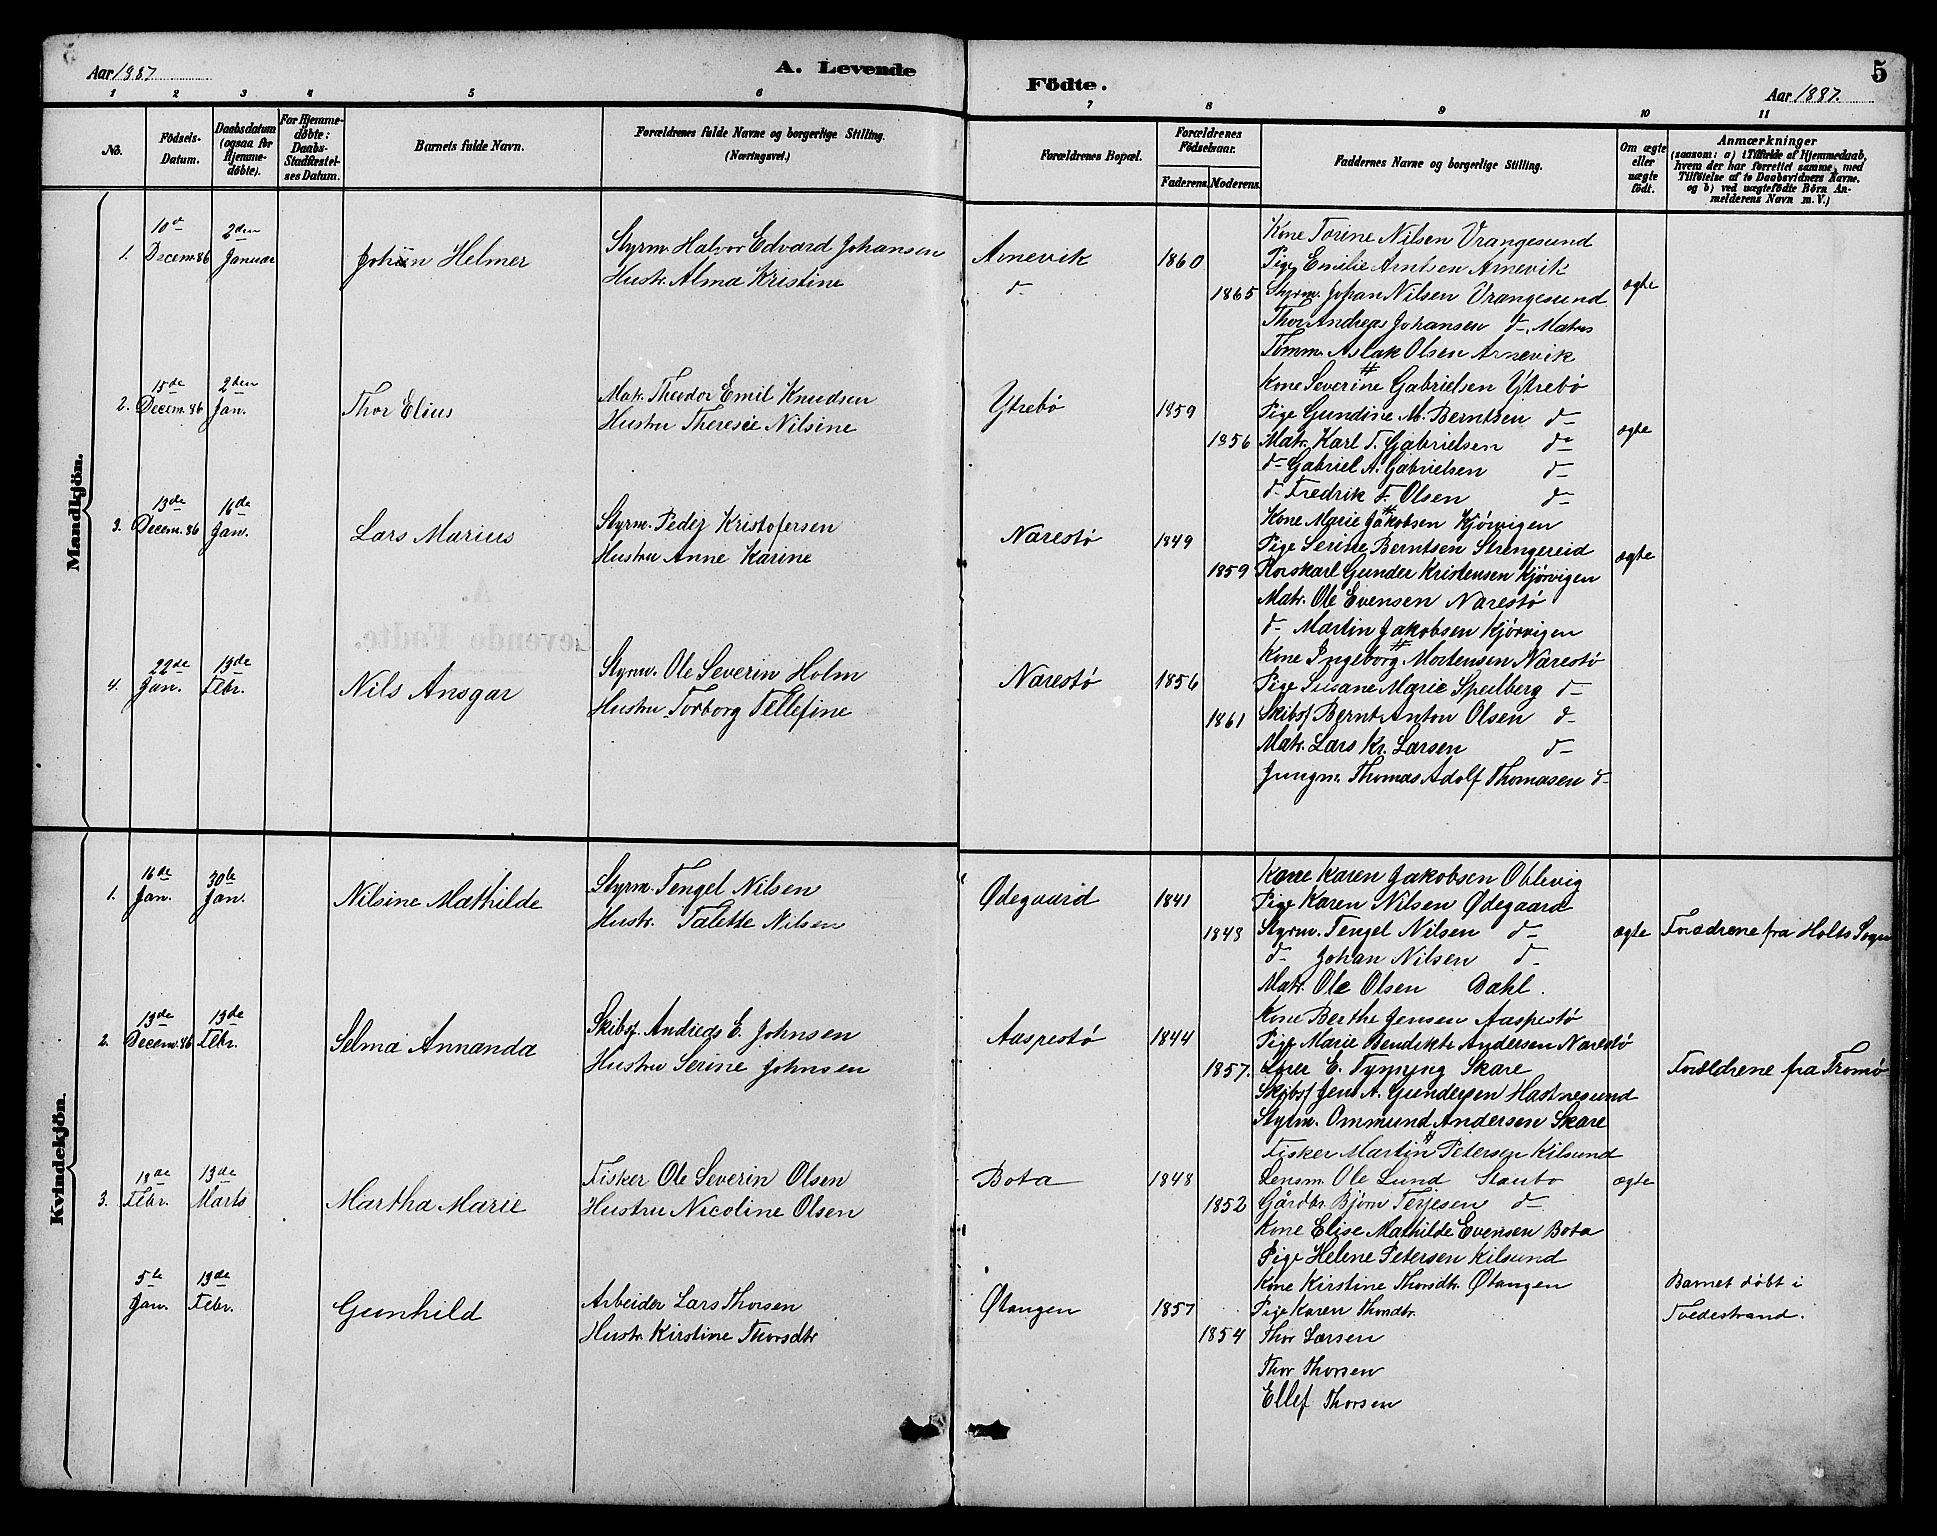 5
Aar 1887.
A. Levende
Födte.
5
Aar 1887.
1 2 3 4 5 6 7 8 9 10 11
No.
Födsels-Datum.
Daabsdatum (ogsaa for Hjemmedöbte).
For Hjemmedöbte: Daabs-Stadfæstelses Datum.
Barnets fulde Navn.
Forældrenes fulde Navne og borgerlige Stilling. (Næringsvei.)
Forældrenes Bopæl.
Forældrenes Födselsaar.
Faderens. Moderens.
Faddernes Navne og borgerlige Stilling.
Om ægte eller uægte födt.
Anmærkninger
(saasom: a) i Tilfælde af Hjemmedaab, hvem der har forrettet samme, med Tilföielse af to Daabsvidners Navne, og b) ved uægtefödte Börn Anmelderens Navn m. V.)
Mandkjön.
1. 10d Decem. 86 2den Januar
Johan Helmer
Styrm. Halvor Edvard Johansen
Hustr. Alma Kristine
Arnevik
d-
1860
1865
Kone Torine Nilsen Vrangesund
Pige Emilie Arntsen Arnevik
Styrm. Johan Nilsen Vrangesund
Thor Andreas Johansen d-. Matros
Tømm. Aslak Olsen Arnevik
ægte
2. 15de Decem. 86 2den Jan.
Thor Elius
Matr. Theodor Emil Knudsen
Hustru Theresie Nilsine
Ytrebö
1859
1856
Kone Severine Gabrielsen Ytrebö
Pige Gundine M. Berntsen d-
Matr. Karl T. Gabrielsen d-
d- Gabriel A. Gabrielsen d-
d- Fredrik F. Olsen d-
ægte
3. 13de Decem. 86 16de Jan.
Lars Marius
Styrm. Peder Kristofersen
Hustru Anne Karine
Narestö
1849
1859
Kone Marie Jakobsen Kjörvigen
Pige Serine Berntsen Strengereid
Rorskarl Gunder Kristensen Kjörvigen
Matr. Ole Evensen Narestö
d- Martin Jakobsen Kjörvigen
ægte
4. 22de Jan. 13de Febr.
Nils Ansgar
Styrm. Ole Severin Holm
Hustru Torborg Tellefine
Narestö
1856
1861
Kone Ingeborg Mortensen Narestö
Pige Susane Marie Speilberg d-
Skibsf Bernt Anton Olsen d-
Matr. Lars Kr. Larsen d-
Jungm. Thomas Adolf Thomasen d-
Kvindekjön.
1. 16de Jan. 30te Jan.
Nilsine Mathilde
Styrm. Tengel Nilsen
Hustr. Talette Nilsen
Ødegaard
1841
1848
Kone Karen Jakobsen Oblevig
Pige Karen Nilsen Ødegaard
Styrm. Tengel Nilsen d-
d- Johan Nilsen d-
Matr. Ole Olsen Dahl.
ægte
Forældrene fra Holts Sogn
2. 13de Decem. 86 13de Febr.
Selma Annanda
Skibsf. Andreas E. Johnsen
Hustru Serine Johnsen
Aasprestö
1844
1857.
Kone Berthe Jensen Aaspestö
Pige Marie Bendikte Andersen Narestö
E. Skare
Skibsf Jens A. Gundersen Hastnesund
Styrm. Ommund Andersen Skare
Forældrene fra Tromö
3. 18de Febr. 13de Marts
Martha Marie
Fisker Ole Severin Olsen
Hustru Nicoline Olsen
Bota
1848
1852
Fisker Martin Petersen Kilsund
Lensm. Ole Lund Staubo
Gårdbr. Bjørn Terjesen d-
Kone Elise Mathilde Evensen Bota
Pige Helene Petersen Kilsund
ægte
5te Jan. 13de Febr.
Gunhild
Arbeider Lars Thorsen
Hustr. Kirstine Thorsdtr
Øtangen
1857
1854
Kone Kirstine Thorsdtr. Øtangen
Pige Karen Thorsdtr.
Thor Larsen
Thor Thorsen
Ellef Thorsen
Barnet döbt i
Tvedestrand.